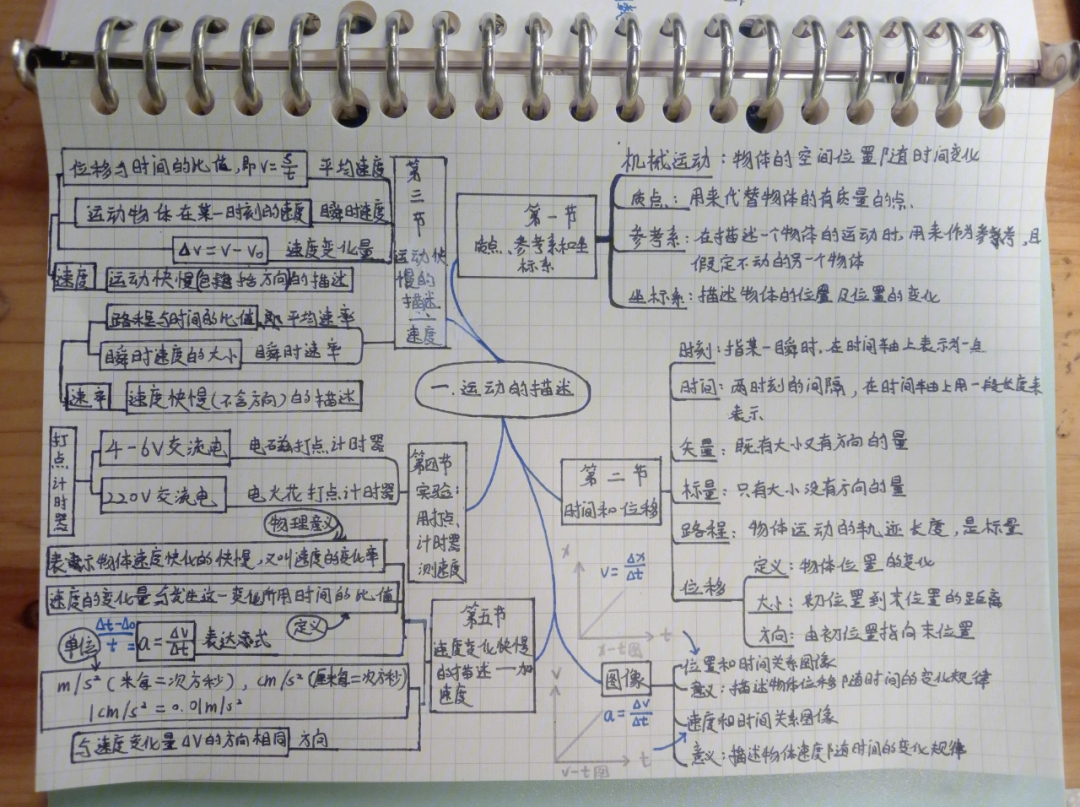 一.运动的描述
第一节
质点、参考系和坐
标系
机械运动：物体的空间位置随时间变化
质点：用来代替物体的有质量的点.
参考系：在描述一个物体的运动时,用来作为参考,且
假定不动的另一个物体
坐标系：描述物体的位置及位置的变化
第二节
时间和位移
时刻：指某一瞬时,在时间轴上表示为一点
时间：两时刻的间隔，在时间轴上用一段长度来
表示
矢量：既有大小又有方向的量
标量：只有大小没有方向的量
路程：物体运动的轨迹长度，是标量
位移
定义：物体位置的变化
大小：初位置到末位置的距离
方向：由初位置指向末位置
第三节
运动快
慢的
描述
速度
位移与时间的比值,即v=s/t 平均速度
运动物体在某一时刻的速度 瞬时速度
Δv=v-v₀ 速度变化量
速度 运动快慢(包括方向)的描述
路程与时间的比值,即平均速率
瞬时速度的大小 瞬时速率
速率 速度快慢(不含方向)的描述
第四节
实验：
用打点
计时器
测速度
打点计时器
4-6V交流电 电磁打点计时器
220V交流电 电火花打点计时器
第五节
速度变化快慢
的描述——加
速度
物理意义
表示物体速度快化的快慢,又叫速度的变化率
速度的变化量与发生这一变化所用时间的比值
定义
单位
Δt-Δ₀/t = a=Δv/Δt 表达式
m/s²(米每二次方秒)，cm/s²(厘米每二次方秒)
1cm/s²=0.01m/s²
与速度变化量ΔV的方向相同 方向
图像
x
v=Δx/Δt
t
x-t图
位置和时间关系图像
意义：描述物体位移随时间的变化规律
v
a=Δv/Δt
t
v-t图
速度和时间关系图像
意义：描述物体速度随时间的变化规律